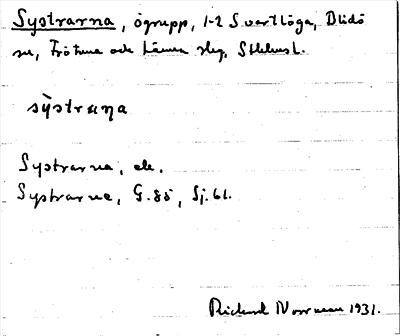 Systrarna, ögrupp, 1-2 S. vart Löga, Blidö
sn, Frötuna och Länna slg, Sthlms l.
sỳstraṇa
Systrarna, ek.
Systrarne, G. 85, Sj. 61.
Rickard Norrman 1931.